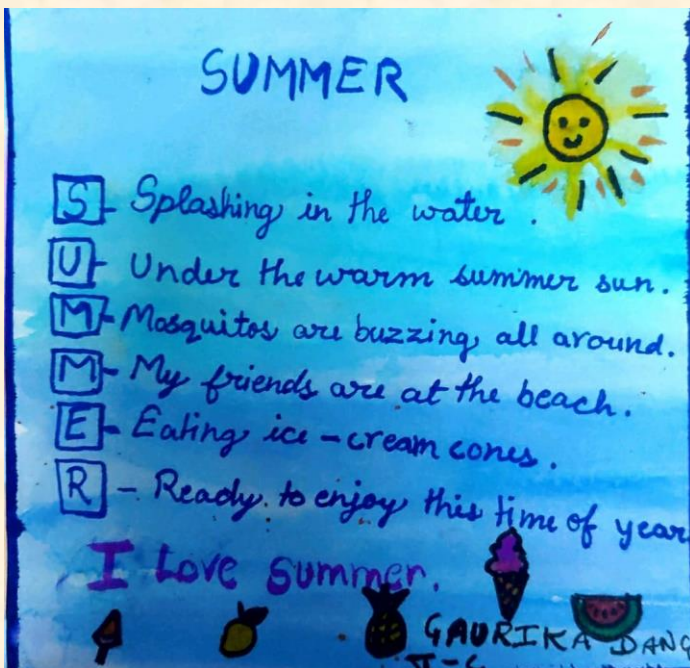 SUMMER
S - Splashing in the water.
U - Under the warm summer sun.
M - Mosquitos are buzzing all around.
M - My friends are at the beach.
E - Eating ice-cream cones.
R - Ready to enjoy this time of year
I Love Summer.
GAURIKA DANG